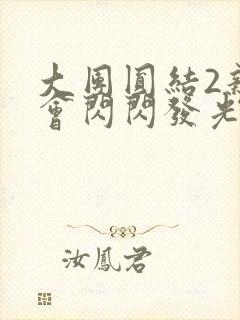 大團圓結2新
會閃閃發光
汝鳳君